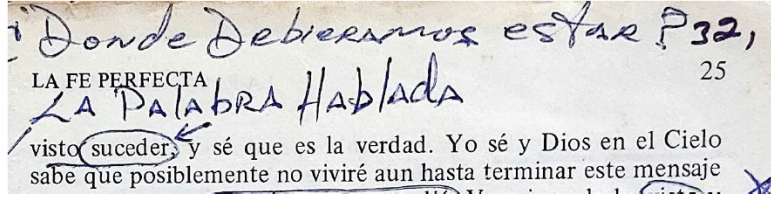 ¿Donde Debieramos estar? 32,
LA FE PERFECTA 25
LA PalabRA HablAdA
visto suceder, y sé que es la verdad. Yo sé y Dios en el Cielo
sabe que posiblemente no viviré aun hasta terminar este mensaje